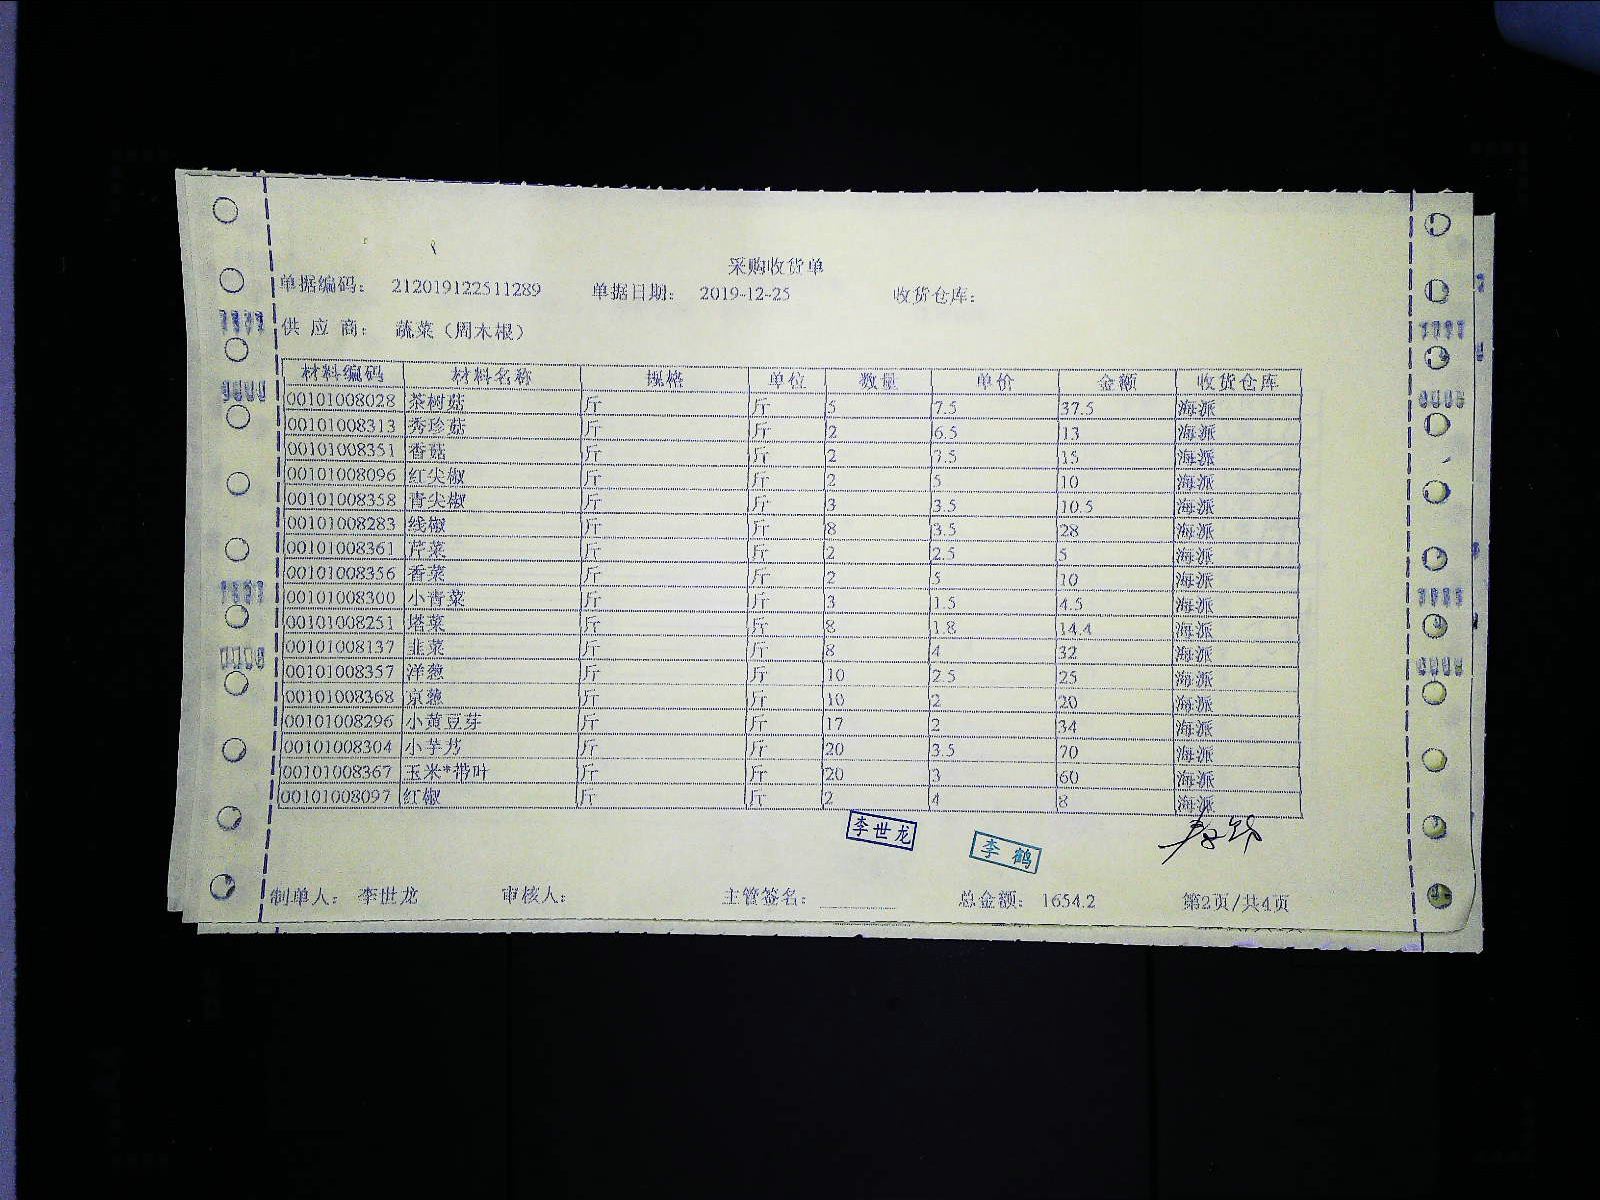 采购收货单
单据编码： 212019122511289 单据日期： 2019-12-25 收货仓库：
供 应 商： 蔬菜（周木根）
材料编码 材料名称 规格 单位 数量 单价 金额 收货仓库
00101008028 茶树菇 斤 斤 5 7.5 37.5 海派
00101008313 秀珍菇 斤 斤 2 6.5 13 海派
00101008351 香菇 斤 斤 2 7.5 15 海派
00101008096 红尖椒 斤 斤 2 5 10 海派
00101008358 青尖椒 斤 斤 3 3.5 10.5 海派
00101008283 线椒 斤 斤 8 3.5 28 海派
00101008361 芹菜 斤 斤 2 2.5 5 海派
00101008356 香菜 斤 斤 2 5 10 海派
00101008300 小青菜 斤 斤 3 1.5 4.5 海派
00101008251 塔菜 斤 斤 8 1.8 14.4 海派
00101008137 韭菜 斤 斤 8 4 32 海派
00101008357 洋葱 斤 斤 10 2.5 25 海派
00101008368 京葱 斤 斤 10 2 20 海派
00101008296 小黄豆芽 斤 斤 17 2 34 海派
00101008304 小芋艿 斤 斤 20 3.5 70 海派
00101008367 玉米*带叶 斤 斤 20 3 60 海派
00101008097 红椒 斤 斤 2 4 8 海派
李世龙 李鹤
制单人： 李世龙 审核人： 主管签名： 总金额： 1654.2 第2页/共4页